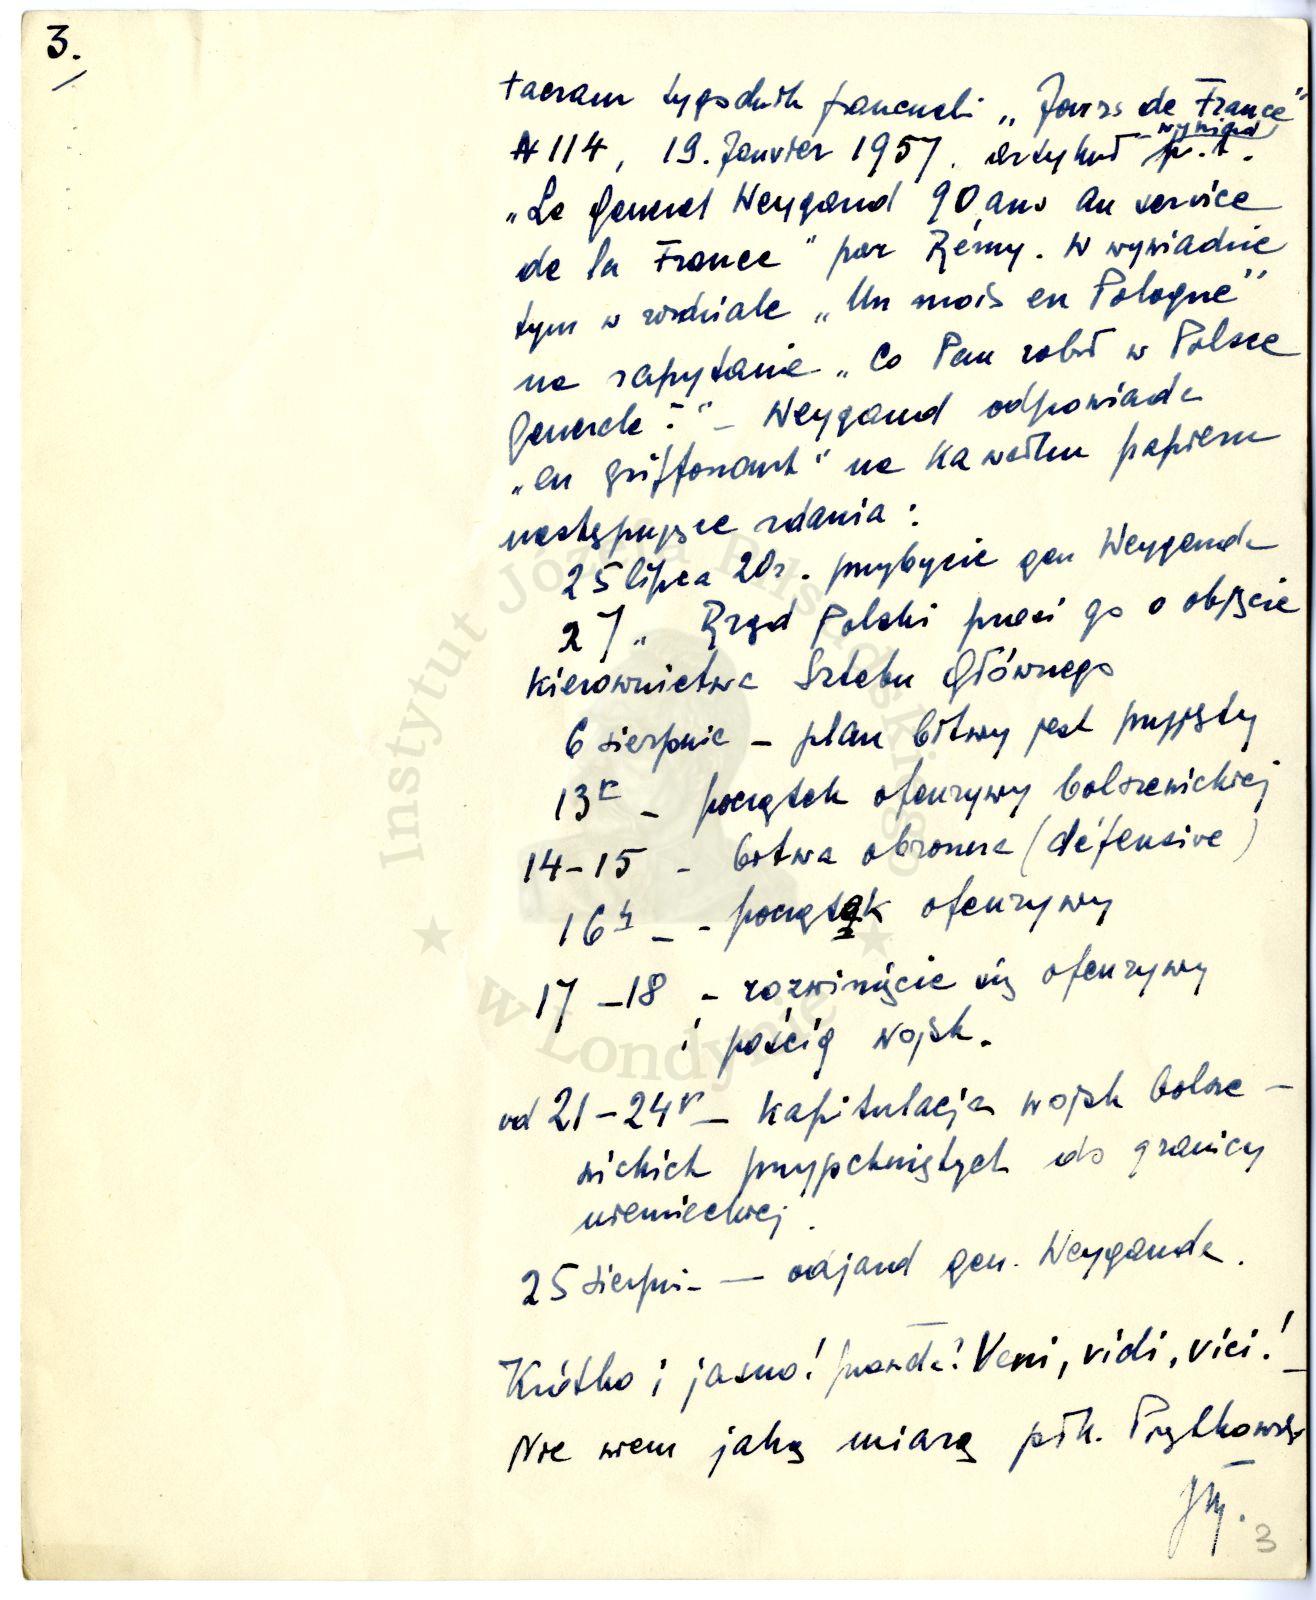 3.
taczam tygodnik francuski „Jours de France”
№ 114, 19. Janvier 1957. artykuł p.t.
wywiad
„Le General Weygand 90 ans au service
de la France” par Rémy. W wywiadzie
tym w rozdziale „Un mois en Pologne”
na zapytanie „Co Pan robił w Polsce
Generale?” – Weygand odpowiada
„en griffonant” na kawałku papieru
następujące zdania:
25 lipca 20r. przybycie gen Weyganda
27 „ Rząd Polski prosi go o objęcie
kierownictwa Sztabu Głównego
6 sierpnia – plan bitwy jest przyjęty
13 – początek ofenzywy bolszewickiej
14–15 – bitwa obronna (défensive)
16 – – początek ofenzywy
17–18 – rozwinięcie się ofenzywy
i pościg wojsk.
od 21–24 – Kapitulacja wojsk bolsze–
wickich przypchniętych do granicy
niemieckiej.
25 sierpnia — odjazd gen. Weyganda.
Krótko i jasno! prawda? Veni, vidi, vici! –
Nie wiem jaką miarą płk. Prątkowski
3
Instytut Józefa Piłsudskiego
★ w Londynie ★